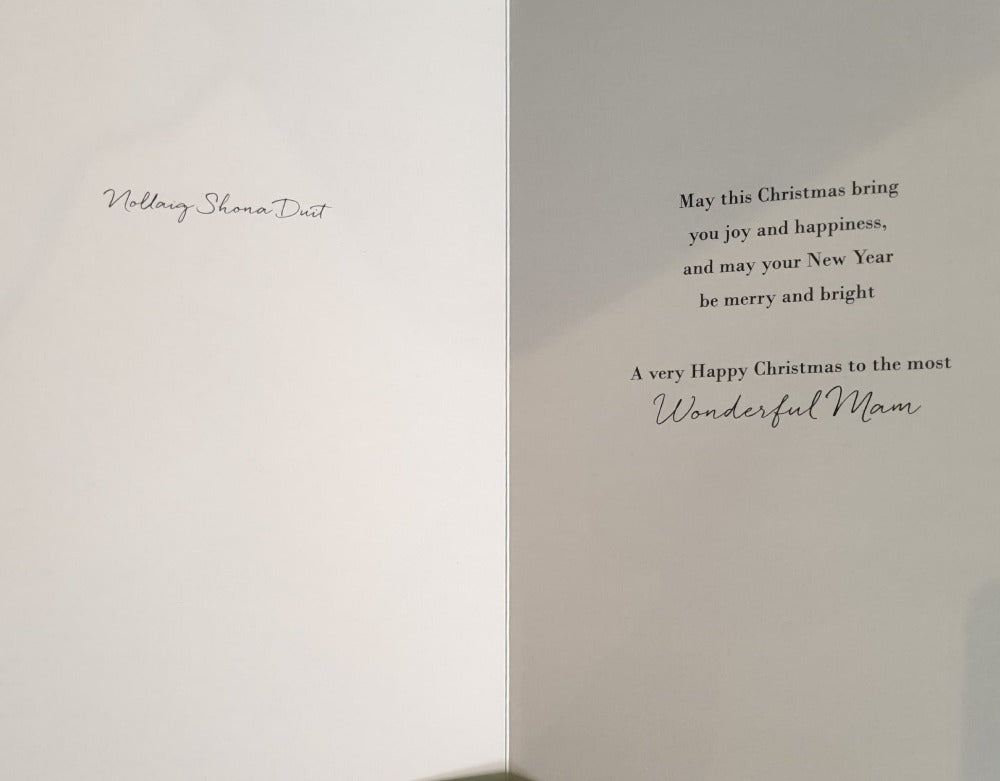 Nollaig Shona Duit
May this Christmas bring
you joy and happiness,
and may your New Year
be merry and bright
A very Happy Christmas to the most
Wonderful Mam